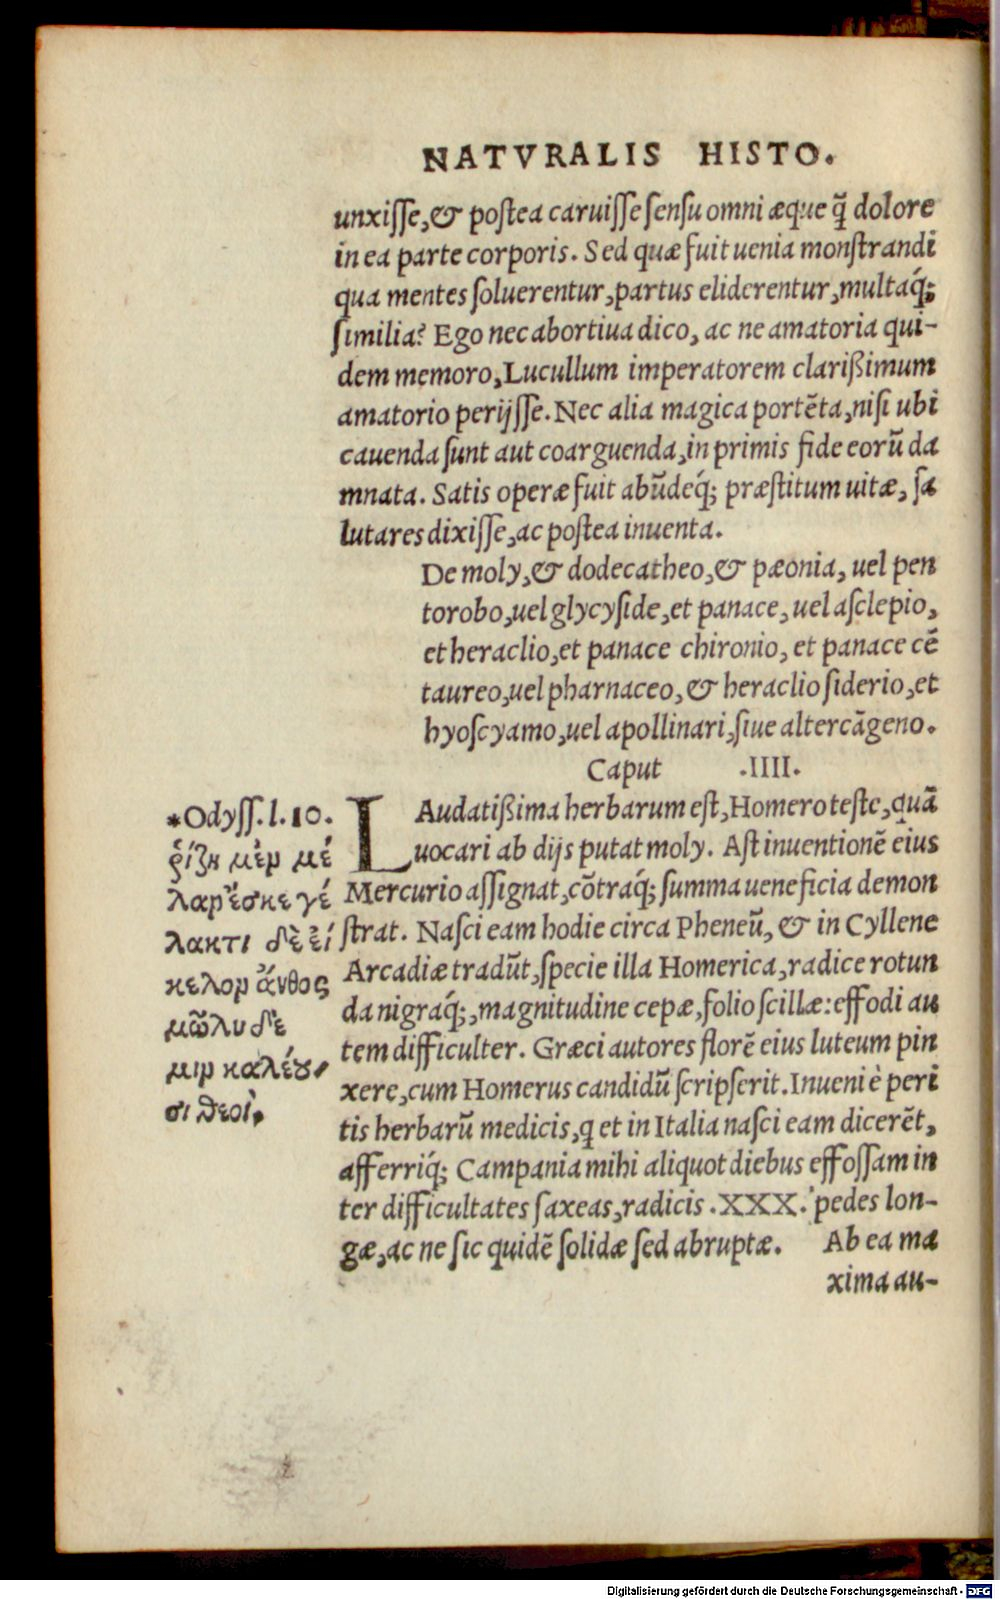 NATVRALIS HISTO.
unxiſſe, & poſtea caruiſſe ſenſu omni æque q̃ dolore
in ea parte corporis. Sed quæ fuit uenia monſtrandi
qua mentes ſoluerentur, partus eliderentur, multaq́;
ſimilia? Ego nec abortiua dico, ac ne amatoria qui-
dem memoro, Lucullum imperatorem clarißimum
amatorio perijſſe. Nec alia magica portẽta, niſi ubi
cauenda ſunt aut coarguenda, in primis fide eorũ da
mnata. Satis operæ fuit abũdeq́; præſtitum uitæ, ſa
lutares dixiſſe, ac poſtea inuenta.
De moly, & dodecatheo, & pæonia, uel pen
torobo, uel glycyſide, et panace, uel aſclepio,
et heraclio, et panace chironio, et panace cẽ
taureo, uel pharnaceo, & heraclio ſiderio, et
hyoſcyamo, uel apollinari, ſiue altercãgeno.
Caput .IIII.
LAudatißima herbarum eſt, Homero teſte, quã
uocari ab dijs putat moly. Aſt inuentionẽ eius
Mercurio aſſignat, cõtraq́; ſumma ueneficia demon
ſtrat. Naſci eam hodie circa Pheneũ, & in Cyllene
Arcadiæ tradũt, ſpecie illa Homerica, radice rotun
da nigraq́;, magnitudine cepæ, folio ſcillæ: effodi au
tem difficulter. Græci autores florẽ eius luteum pin
xere, cum Homerus candidũ ſcripſerit. Inueni è peri
tis herbarũ medicis, q et in Italia naſci eam dicerẽt,
afferriq́; Campania mihi aliquot diebus effoſſam in
ter difficultates ſaxeas, radicis .XXX. pedes lon-
gæ, ac ne ſic quidẽ ſolidæ ſed abruptæ. Ab ea ma
xima au-
*Odyſſ. l. 10.
ῥίζη μὲν μέ
λαν ἔσκε γέ
λακτι δὲ εἴ
κελον ἄνθος
μῶλυ δέ
μιν καλέου
σι θεοί,
Digitalisierung gefördert durch die Deutsche Forschungsgemeinschaft - DFG